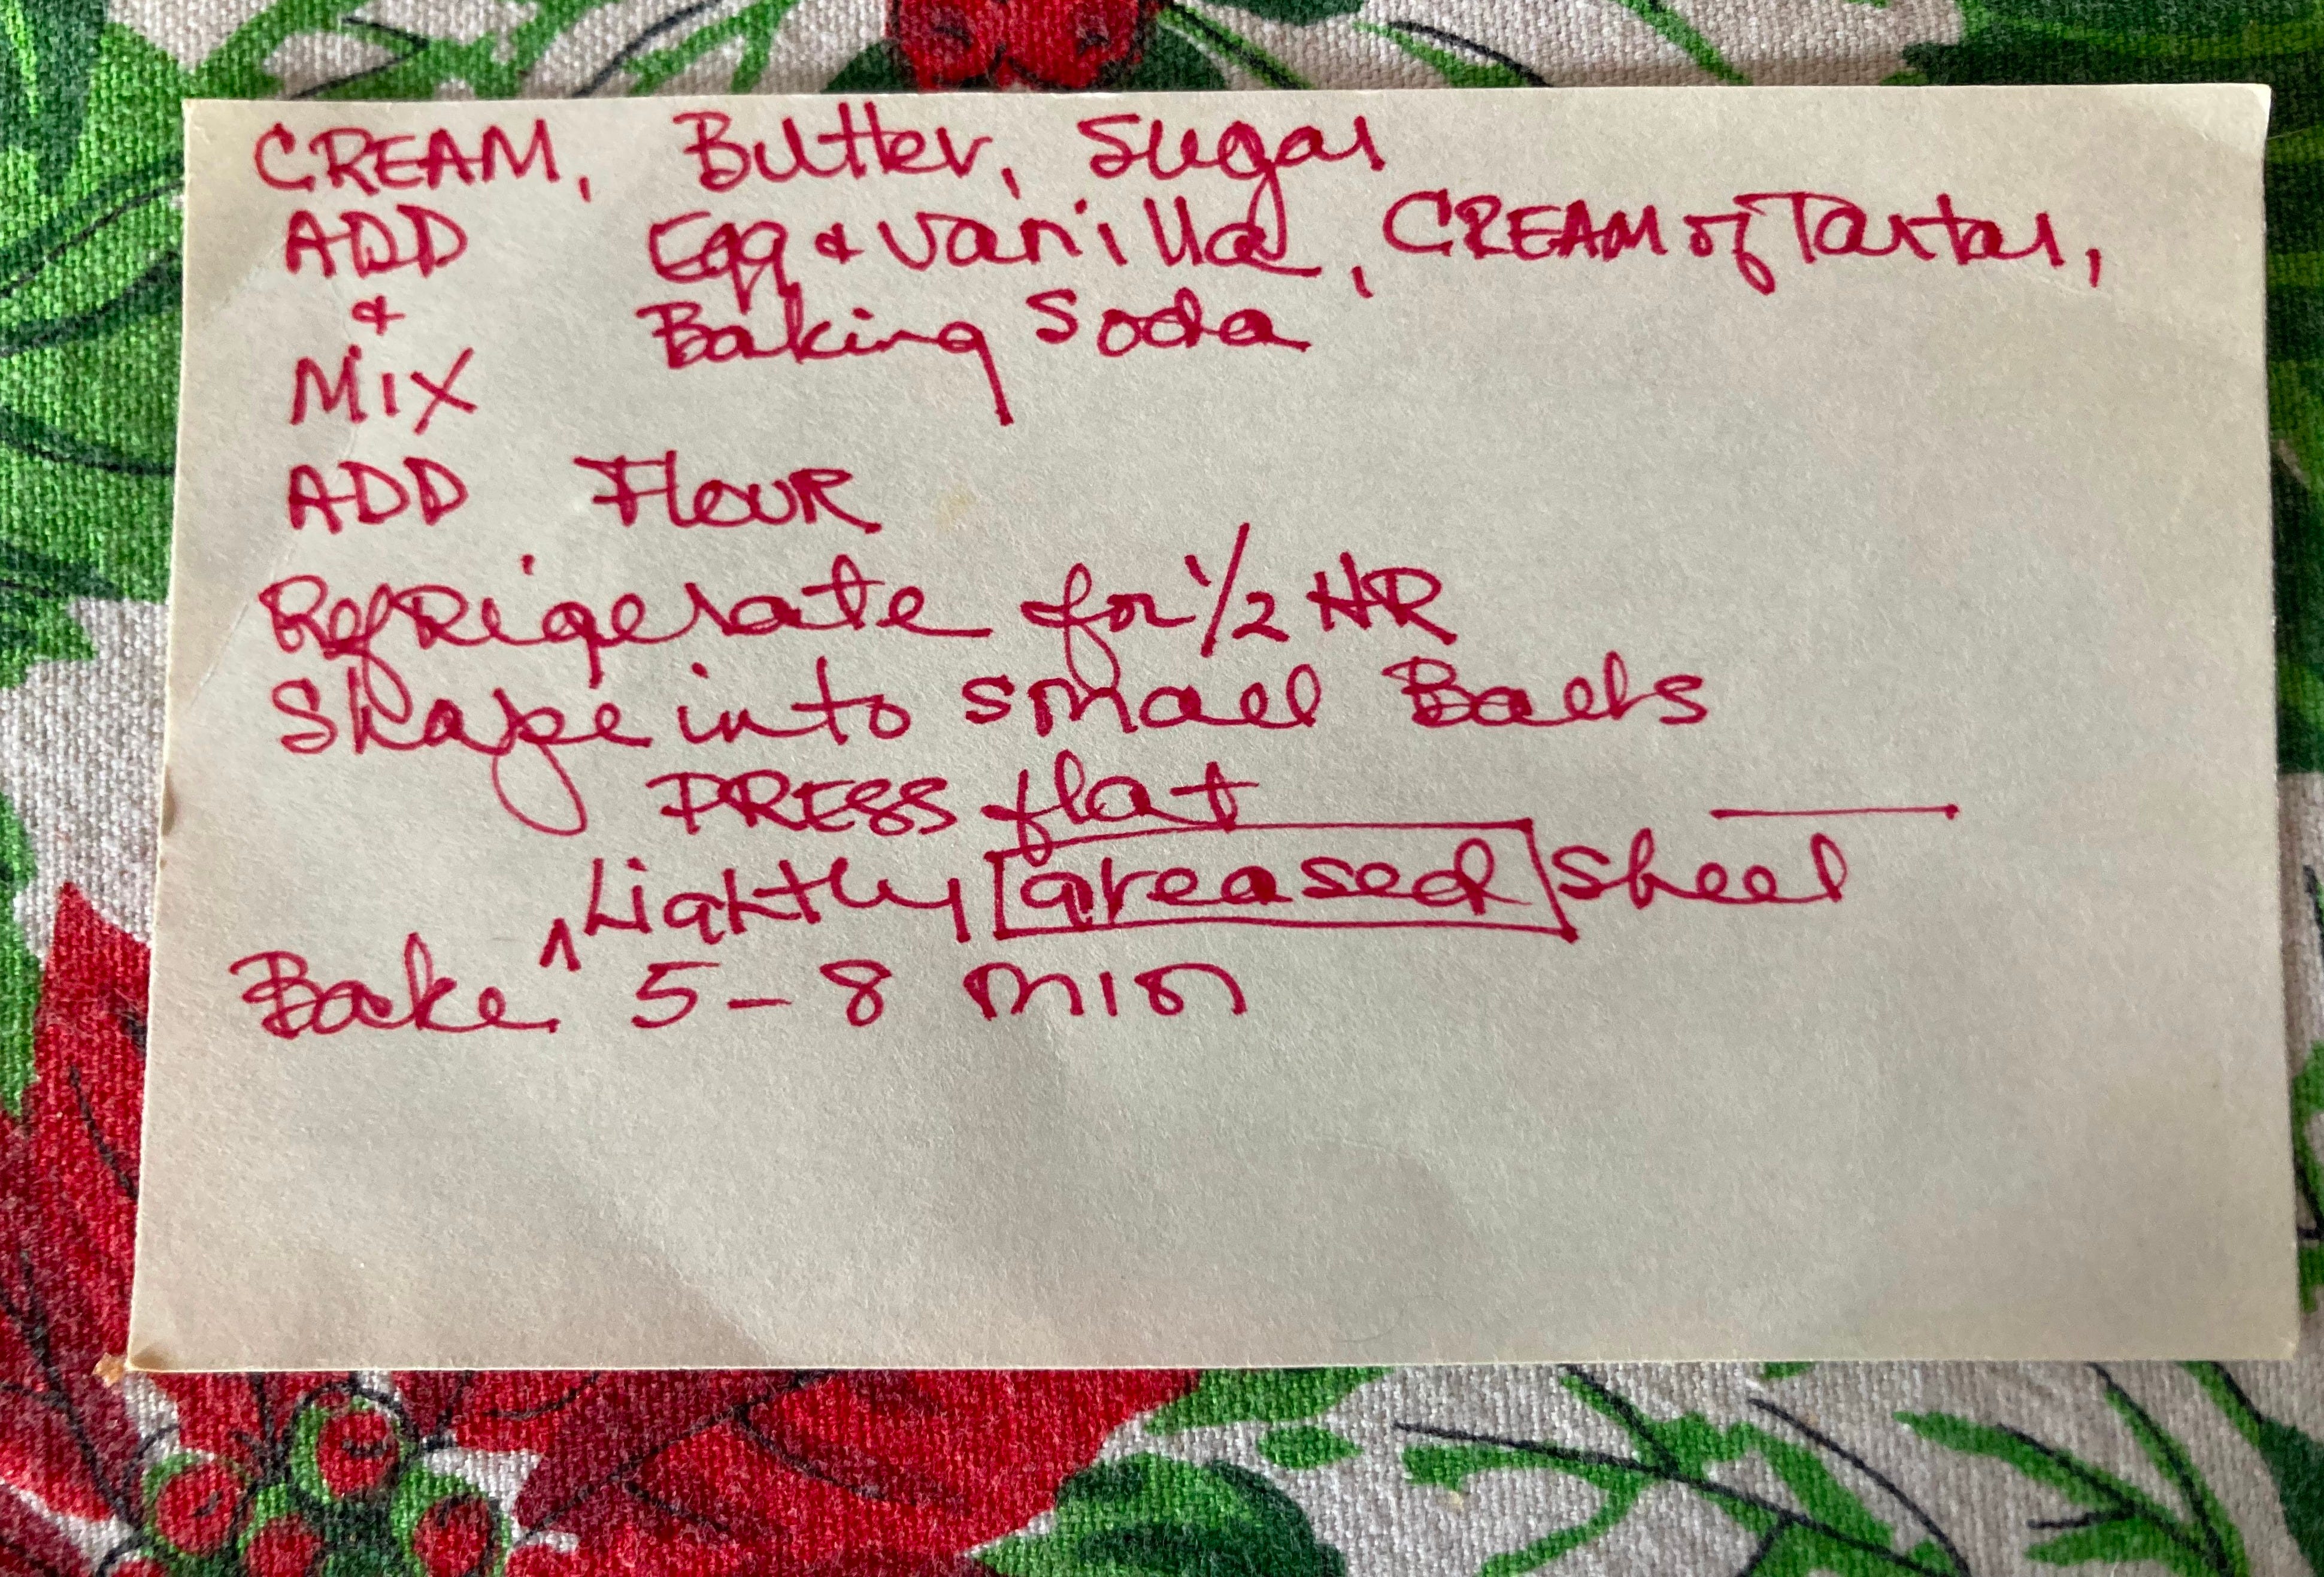 CREAM, Butter, Sugar
ADD Egg & Vanilla, CREAM of Tartar,
& Baking Soda
MIX
ADD FLOUR
Refrigerate for 1/2 HR
Shape into small Balls
PRESS flat
^ Lightly greased Sheet
Bake 5-8 min